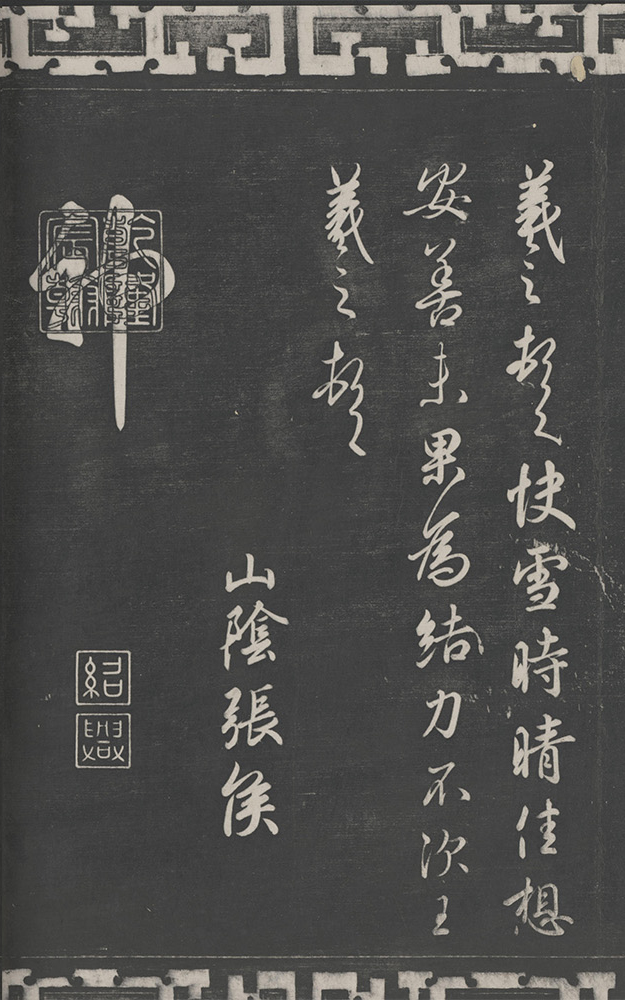 羲之頓首快雪時晴佳想
安善未果為結力不次王
羲之頓首
山陰張侯
神
乾隆宸翰
紹興